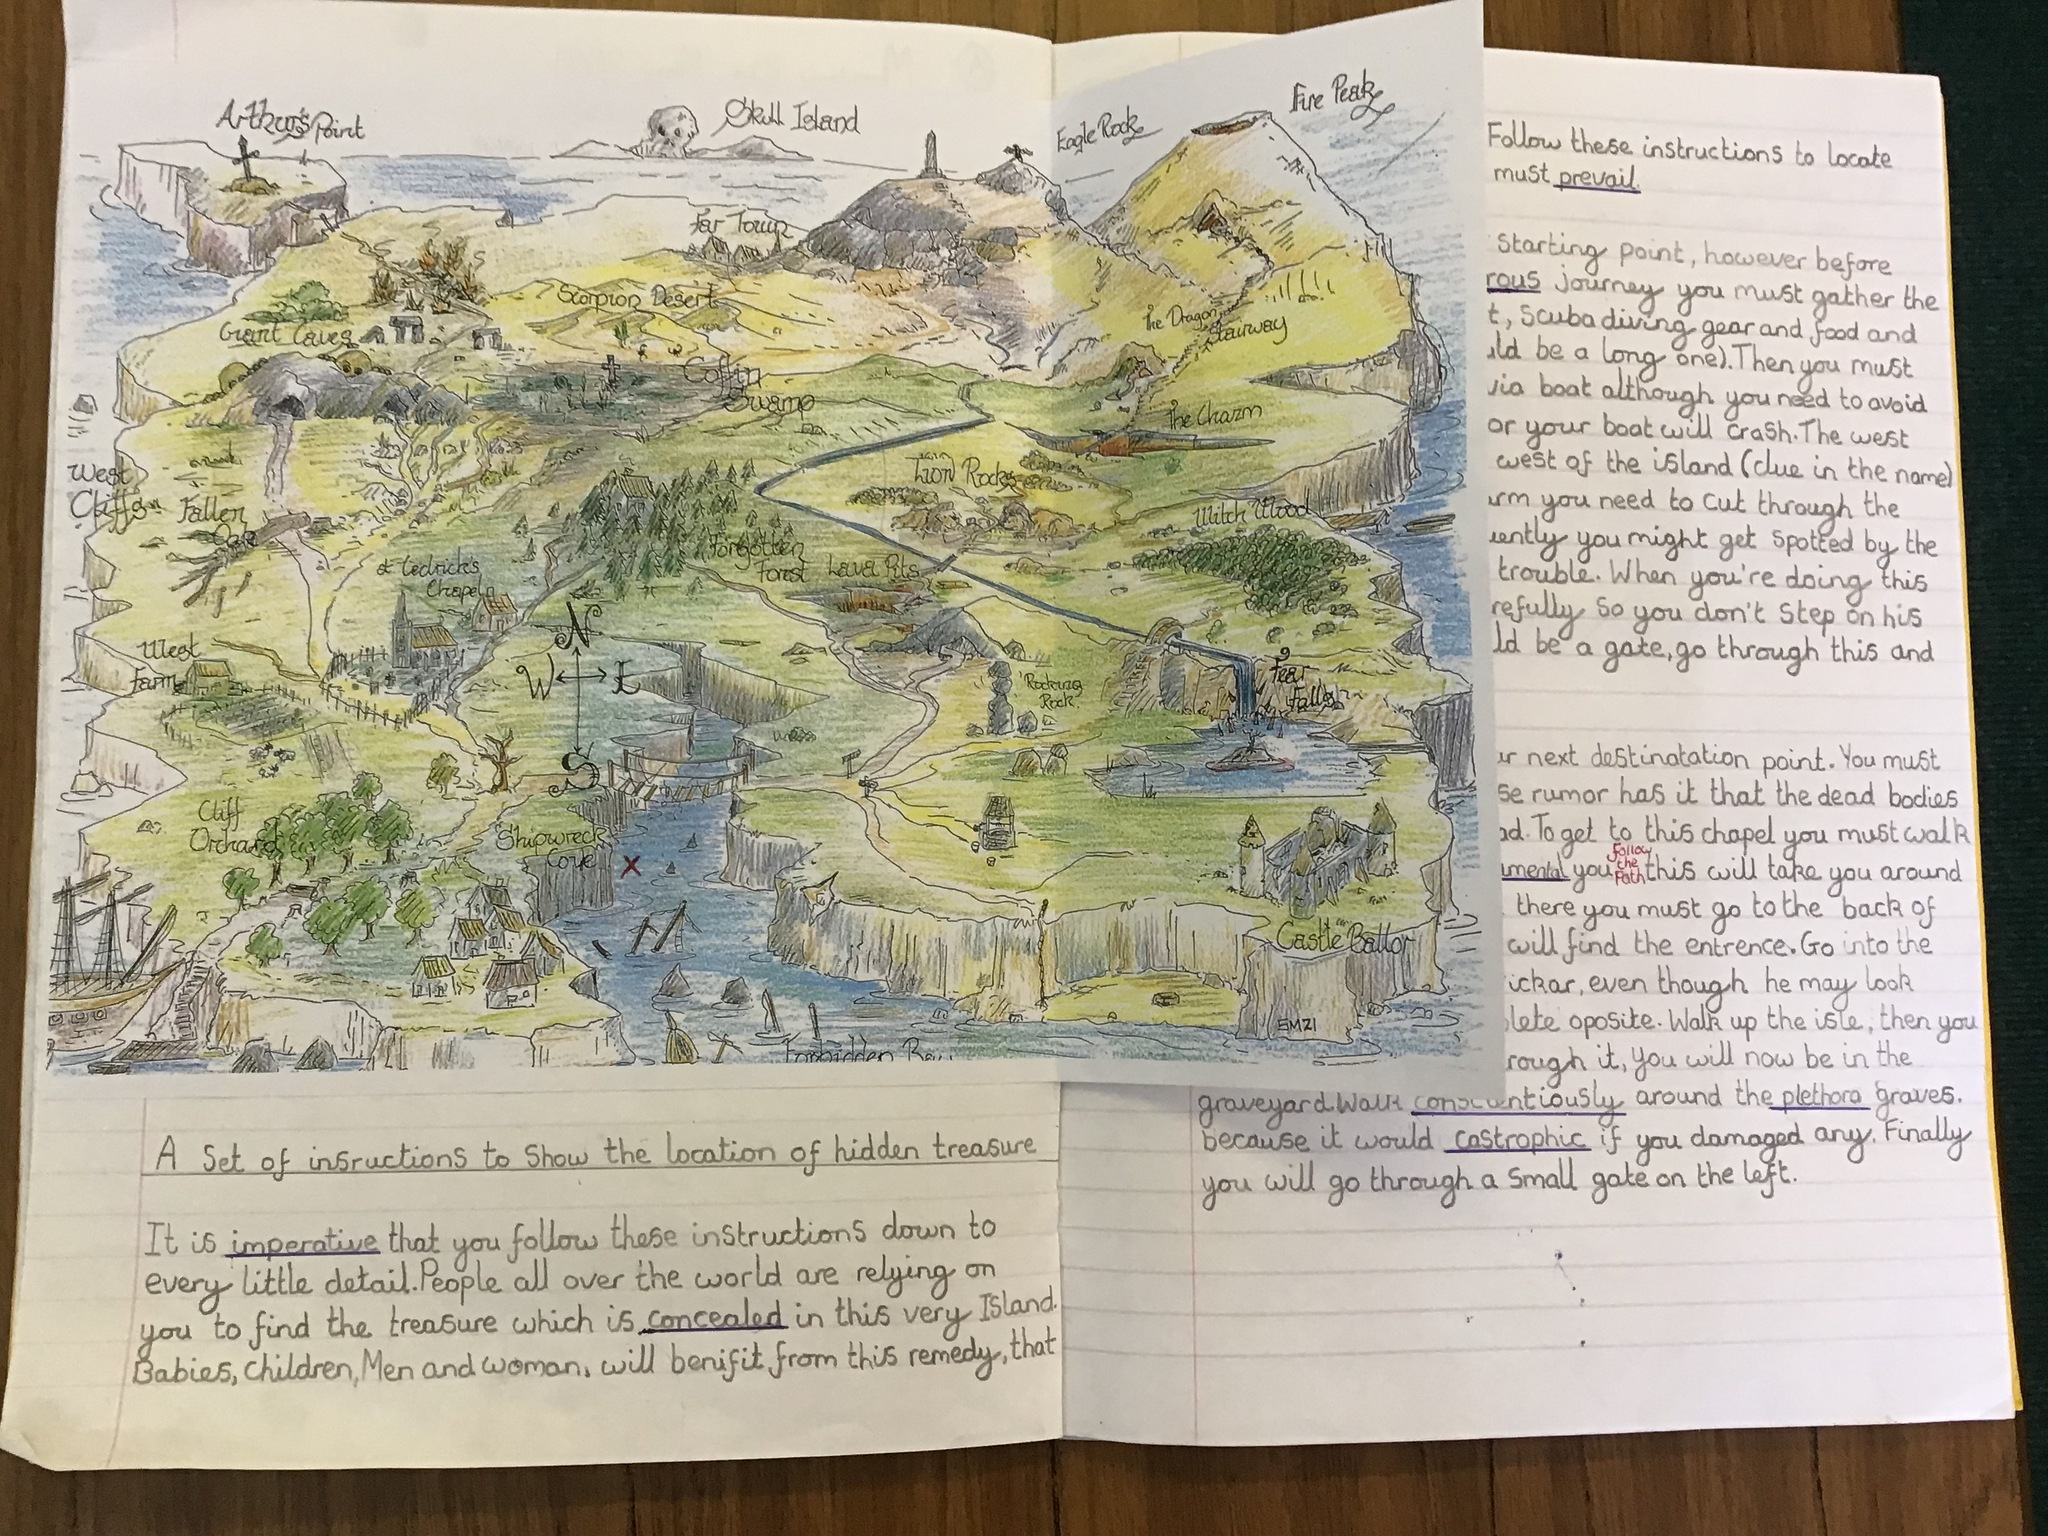 Arthur's Point
Skull Island
Eagle Rock
Fire Peak
Far Town
Scorpion Desert
Giant Caves
The Dragon
Stairway
Coffin
Swamp
The Chazm
West
Cliffs
Fallen
Oak
Lion Rocks
Witch Wood
Forgotten
Forest
Lava Pits
St Cedrick's
Chapel
N
W
E
S
West
Farm
Rocking
Rock
Fear
Falls
Cliff
Orchard
Shipwreck
Cove
X
Castle Ballor
EMZI
Forbidden Bay
A Set of insructions to Show the location of hidden treasure
It is imperative that you follow these instructions down to
every little detail. People all over the world are relying on
you to find the treasure which is concealed in this very Island.
Babies, children, Men and woman, will benifit from this remedy, that
Follow these instructions to locate
must prevail.
starting point, however before
rous journey you must gather the
t, Scuba diving gear and food and
ld be a long one). Then you must
via boat although you need to avoid
or your boat will crash. The west
west of the island (clue in the name)
arm you need to cut through the
uently you might get spotted by the
trouble. When you're doing this
refully so you don't step on his
ld be a gate, go through this and
ur next destinatation point. You must
se rumor has it that the dead bodies
ad. To get to this chapel you must walk
umental you Follow the Path this will take you around
there you must go to the back of
will find the entrence. Go into the
ickar, even though he may look
lete oposite. Walk up the isle, then you
rough it, you will now be in the
graveyard. Walk conscientiously around the plethora graves.
because it would castrophic if you damaged any. Finally
you will go through a small gate on the left.